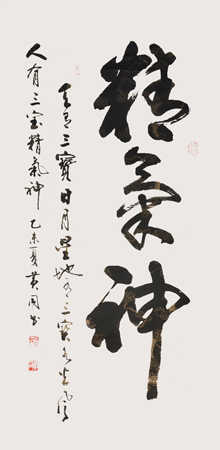 精氣神
天有三寶日月星地有三寶水火風
人有三宝精氣神 乙未夏黄国书